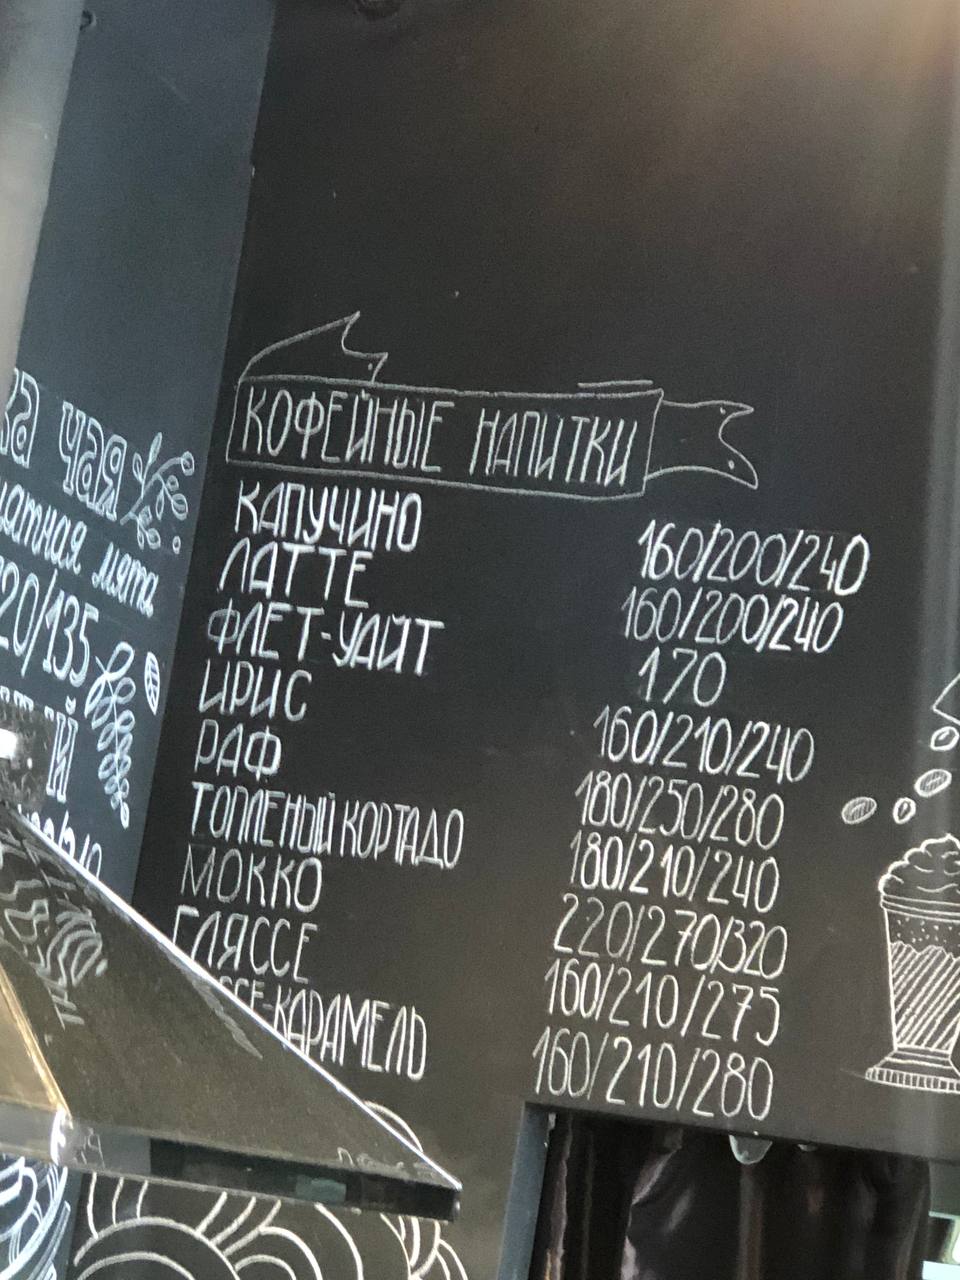 чая
мята
135
КОФЕЙНЫЕ НАПИТКИ
КАПУЧИНО 160/200/240
ЛАТТЕ 160/200/240
ФЛЕТ-УАЙТ 170
ИРИС 160/210/240
РАФ 180/250/280
ТОПЛЕНЫЙ КОРТАДО 180/210/240
МОККО 220/270/320
ГЛЯССЕ 160/210/275
ССЕ-КАРАМЕЛЬ 160/210/280